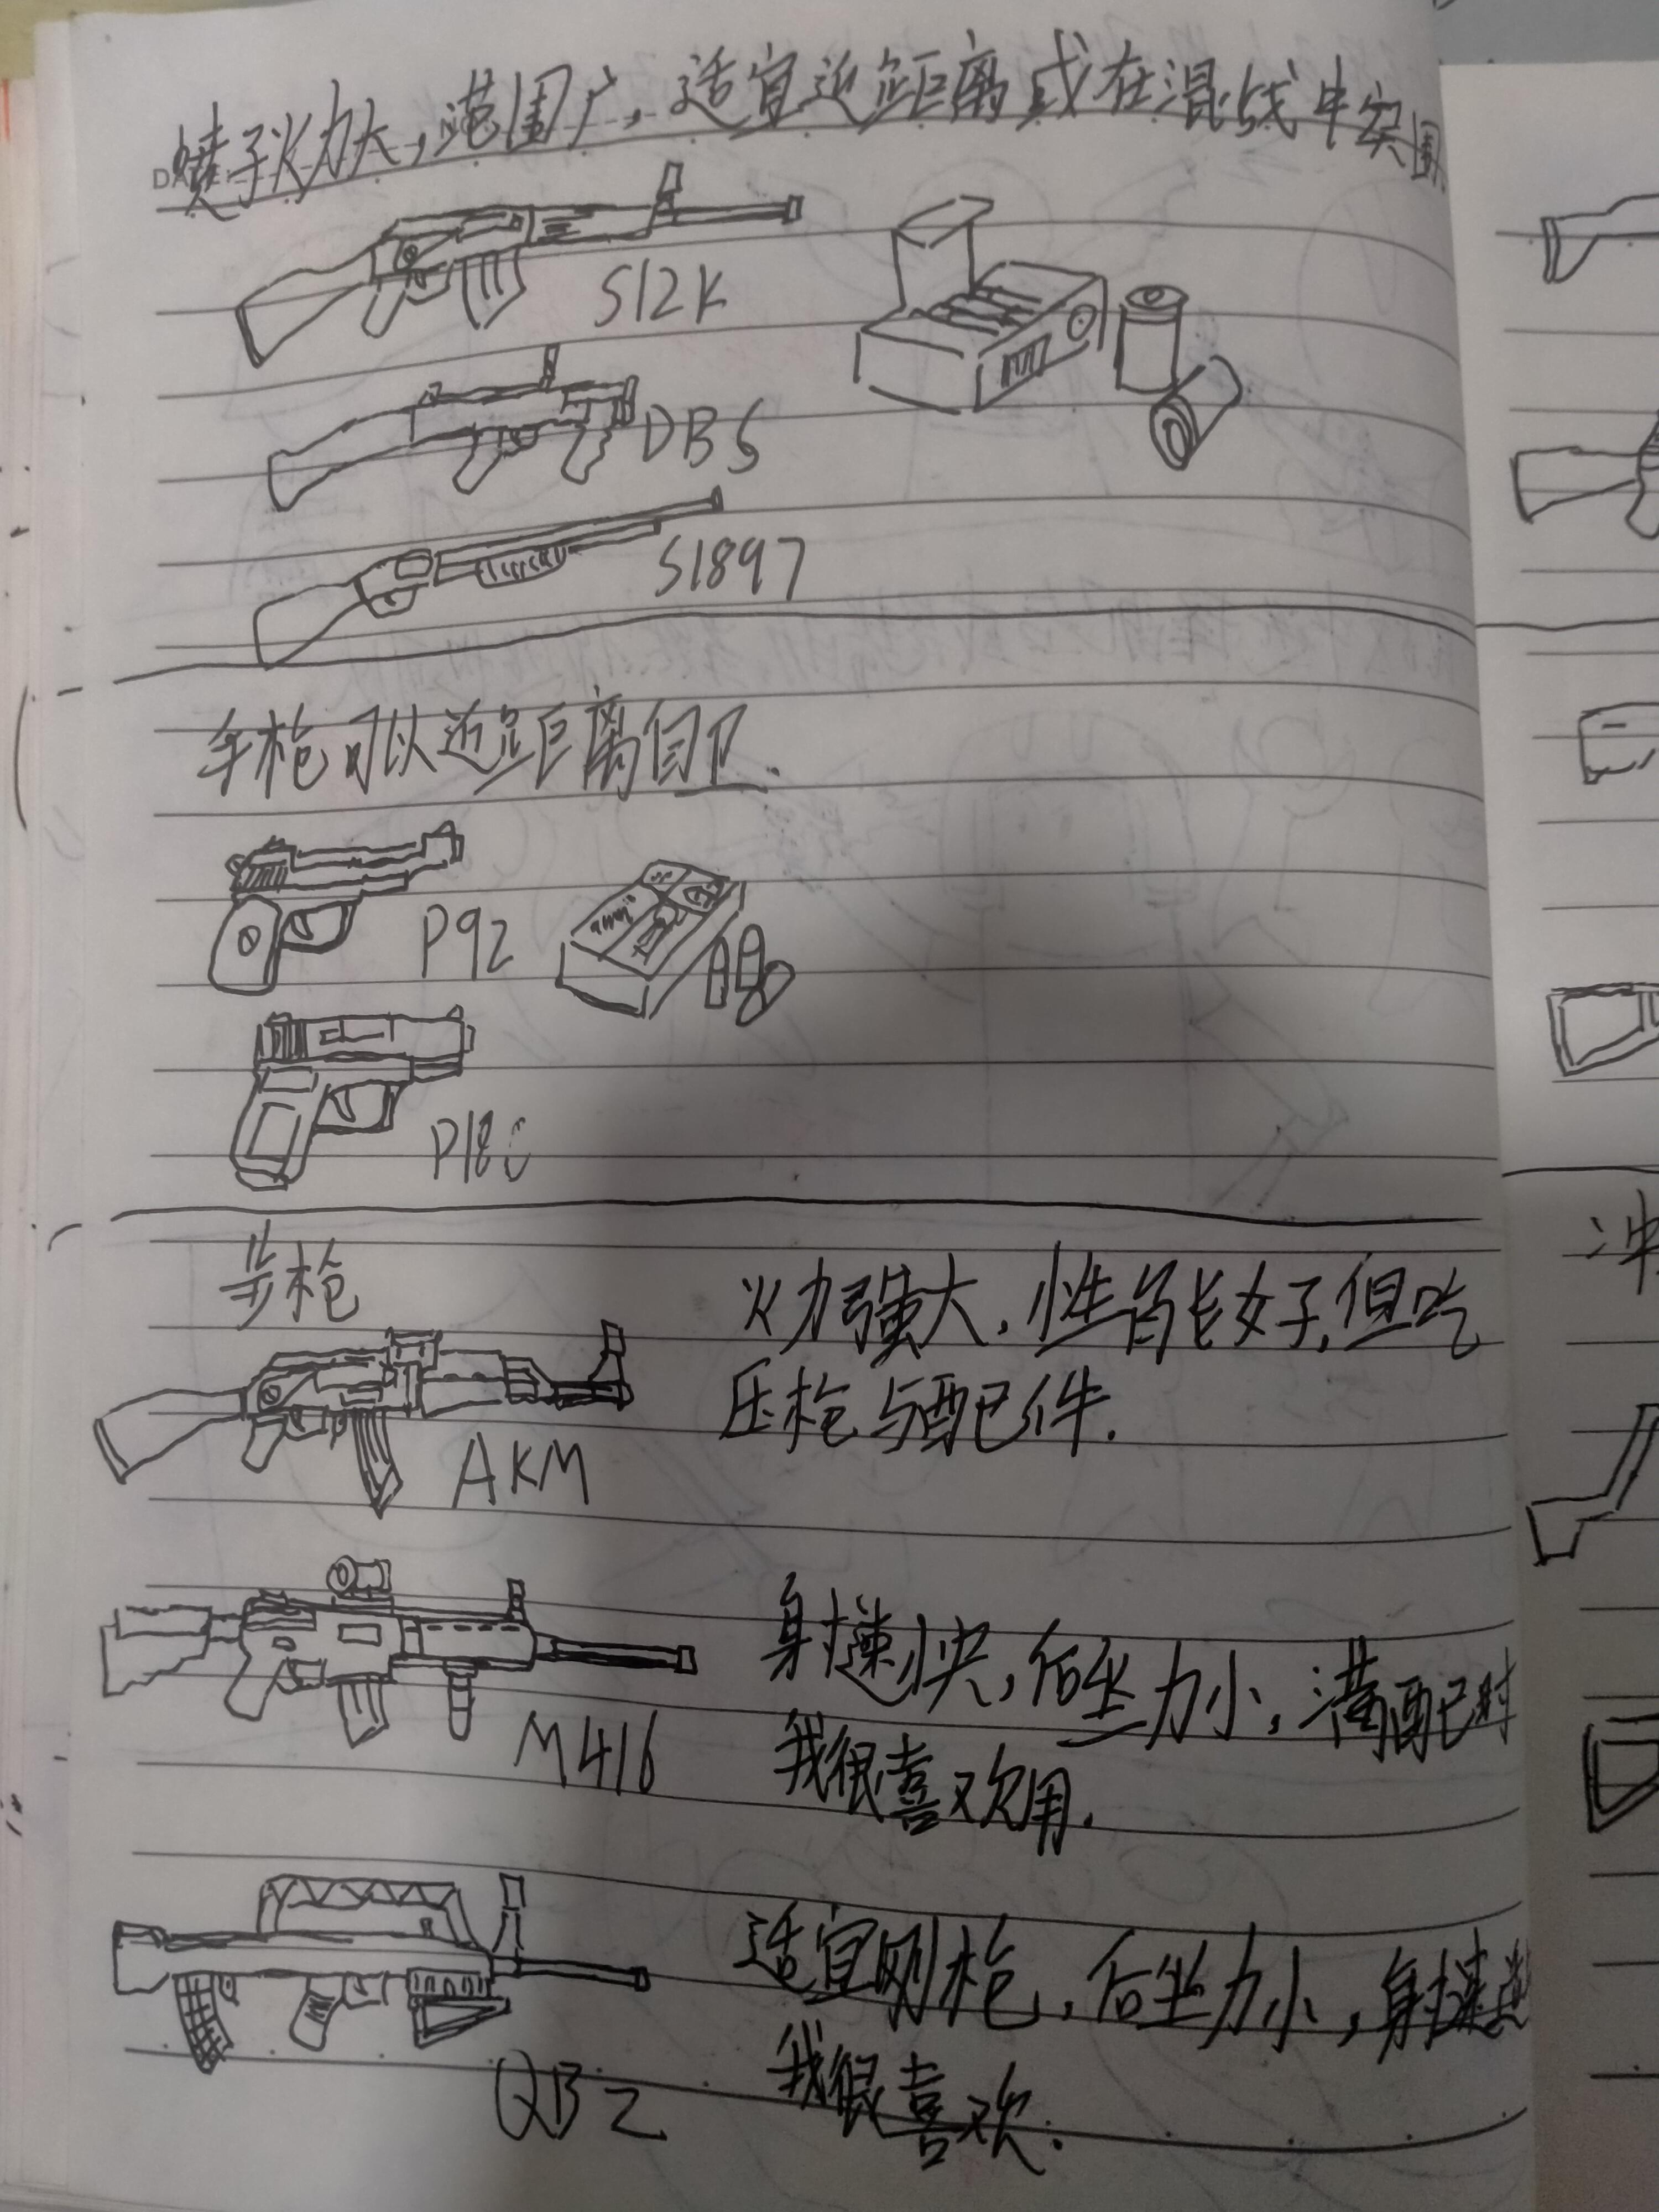 喷子火力大,范围广,适宜近距离或在混战中突围
S12K
DBS
S1897
手枪可以近距离自卫.
P92
P18C
步枪
火力强大,性能好,但吃
压枪与配件.
AKM
射速快,后坐力小,满配时
我很喜欢用.
M416
适宜刚枪,后坐力小,射速
我很喜欢.
QBZ
冲